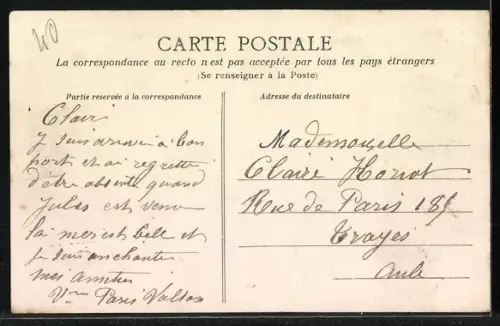 40
CARTE POSTALE
La correspondance au recto n'est pas acceptée par tous les pays étrangers
(Se renseigner à la Poste)
Partie reservée à la correspondance
Adresse du destinataire
Clair
Je suis arrivé à bon
port et ai regretté
d'être absente quand
Jules est venu
la mer est belle et
je suis enchanté
mes amitiés
Paris
Mademoiselle
Claire Horiot
Rue de Paris 185
Troyes
Aube